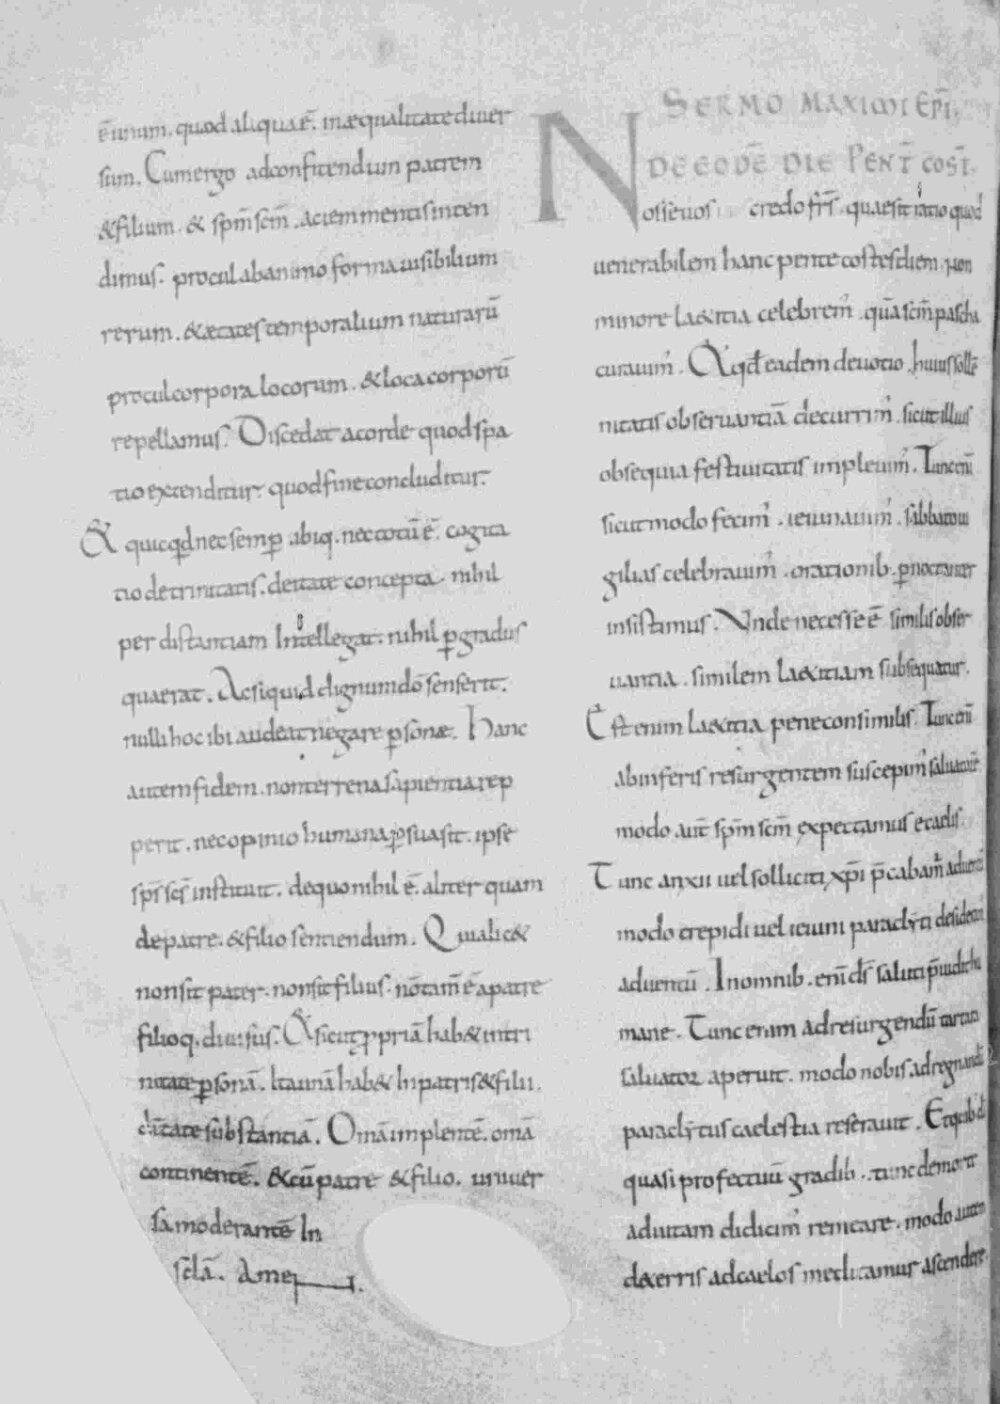 ē unum. quod aliqua ē. inæqualitate diuer
sum. Cum ergo ad confitendum patrem
& filium. & sp̄m sc̄m. aciem mentis inten
dimus. procul ab animo forma uisibilium
rerum. & ætates temporalium naturarū
procul corpora locorum. & loca corporū
repellamus. Discedat a corde quod spa
tio extenditur quod fine concluditur.
& quicqd̄ nec semp̄ ubiq. nec totū ē. cogita
tio de trinitatis. deitate concepta. nihil
per distantiam Intellegat. nihil p̄ gradus
quaerat. Ac si quid dignum dō senserit.
nulli hoc ibi audeat negare p̄sonæ. Hanc
autem fidem. non terrena sapientia rep
perit. nec opinio humana p̄suasit. ipse
sp̄s sc̄s instituit. de quo nihil ē. aliter quam
de patre. & filio sentiendum. Qui alic&
non sit pater. non sit filius. nō tam̄ ē a patre
filioq. diuisus. & sicut p̄priā hab& in tri
nitate p̄sonā. Ita unā hab& In patris & filii.
deitate substantiā. Om̄a implentē. om̄a
continentē. & cū patre & filio. uniuer
sa moderantē In
sc̄la. Amen.
SERMO MAXIMI EP̄I.
DE EODĒ DIE PENT̄COST̄.
Nosse uos credo fr̄s. quae sit ratio quod
uenerabilem hanc pentecostes diem. non
minore lætitia celebrem'. quā sc̄m pascha
curauim'. & qd̄ eadem deuotio. huius solle
nitatis obseruantiā decurrim'. sicut illius
obsequia festiuitatis impleuim'. Tunc eni
sicut modo fecim'. ieiunauim'. sabbato ui
gilias celebrauim'. orationib. p̄noctanter
institimus. Unde necesse ē similis obser
uantia. similem lætitiam subsequatur.
Est enim lætitia pene consimilis. Tunc eni
ab inferis resurgentem suscepim' saluatorē
modo aut̄ sp̄m sc̄m expectamus e caelis.
Tunc anxii uel solliciti xp̄i p̄cabam' aduentū
modo trepidi uel ieiuni paraclyti
aduentū. In omnib. eni ds̄ saluti
mane. Tunc eram ad resurgendū tartara
saluator aperuit. modo nobis ad regnandū
paraclytus caelestia reserauit. Et
quasi profectuū gradib. tunc de morte
ad uitam didicim' remeare. modo autem
de terris ad caelos meditamur ascendere.